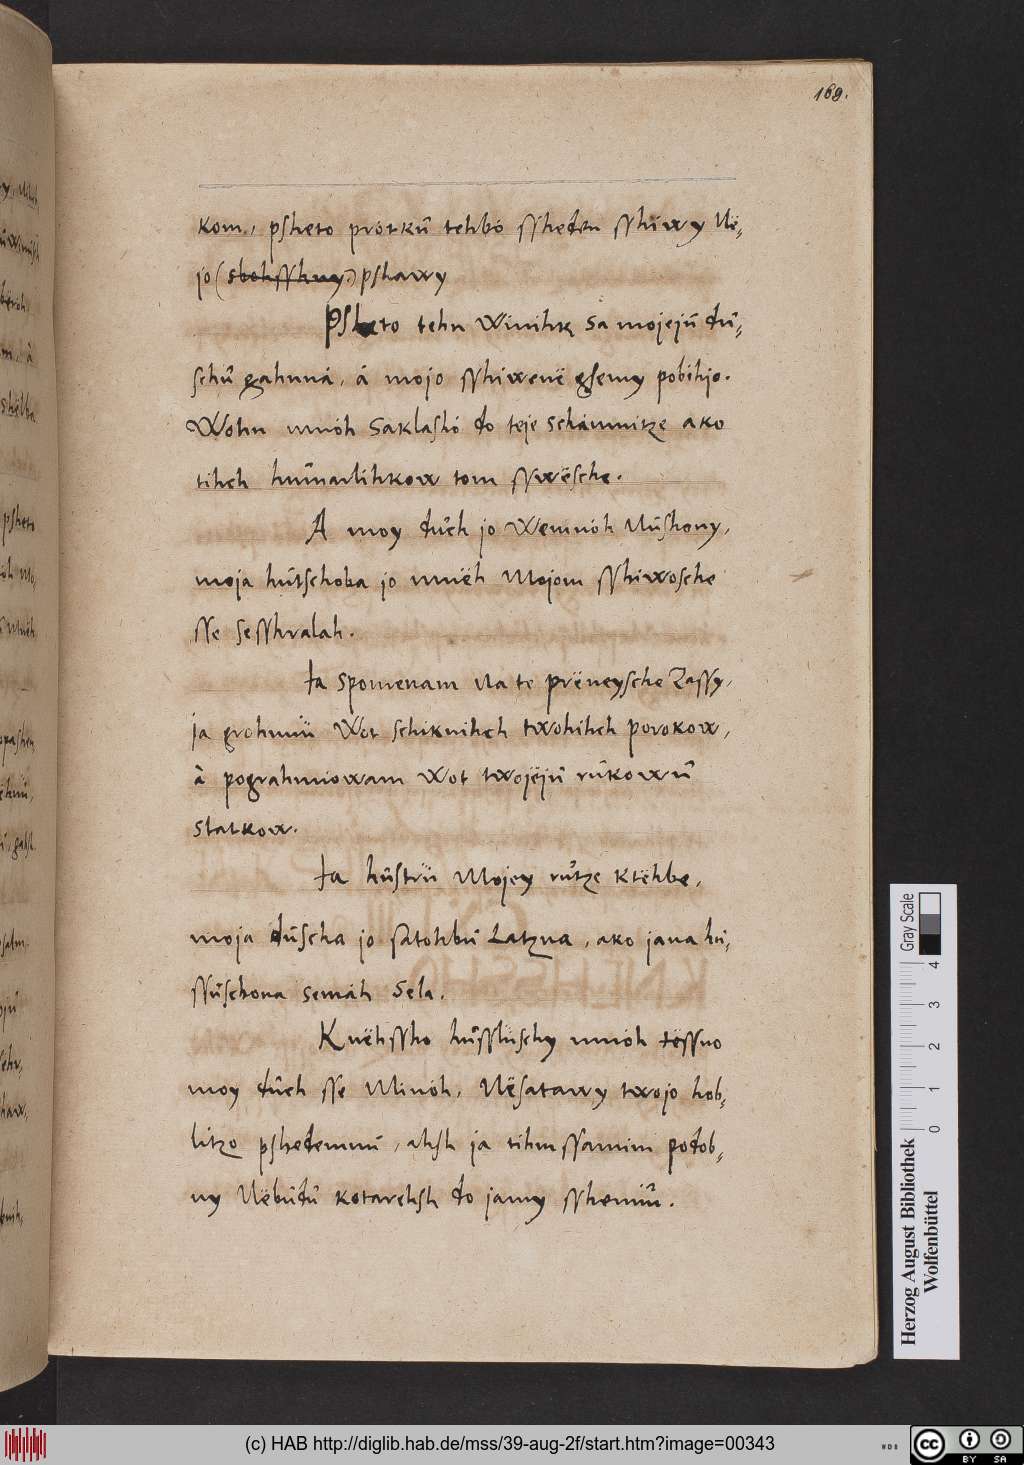 169.
kom., psheto prötkű tehbö ssheden sshiwy Në⸗
jo (sbohsshny.) pshawy
Psheto tehn Winihk sa mojejű du⸗
schű gahnná, á mojo sshiwenë gsemy pobihjo.
Wohn mnöh Saklashó do teje schámnitze ako
tihch humarlihkow tom sswësche.
A moy dűch jo Wemnöh Nűshony,
moja hutschoba jo mnëh Mojom sshiwosche
sse sesshralah.
Ja spomenam na te prëneysche Zassy,
ja grohnuü Wot schiknihch twohihch porokow,
à pograhniowam wot twojëjű růkowű
statkow.
Ja hůstrü Mojey růtze ktëhbe,
moja dűscha jo satohbű Latzna, ako jana hu⸗
ssűschona semáh Sela.
Knëhssho hůsslüschy mnöh tëssno
moy dűch sse Minöh, Nësatawy twojo hob⸗
litzo pshedemnű, ahsh ja tihm ssamim podob⸗
ny Nëbűdű kotarehsh do jamy sshemiű.
Gray Scale
4
3
2
1
0
Herzog August Bibliothek
Wolfenbüttel
(c) HAB http://diglib.hab.de/mss/39-aug-2f/start.htm?image=00343
cc
BY SA